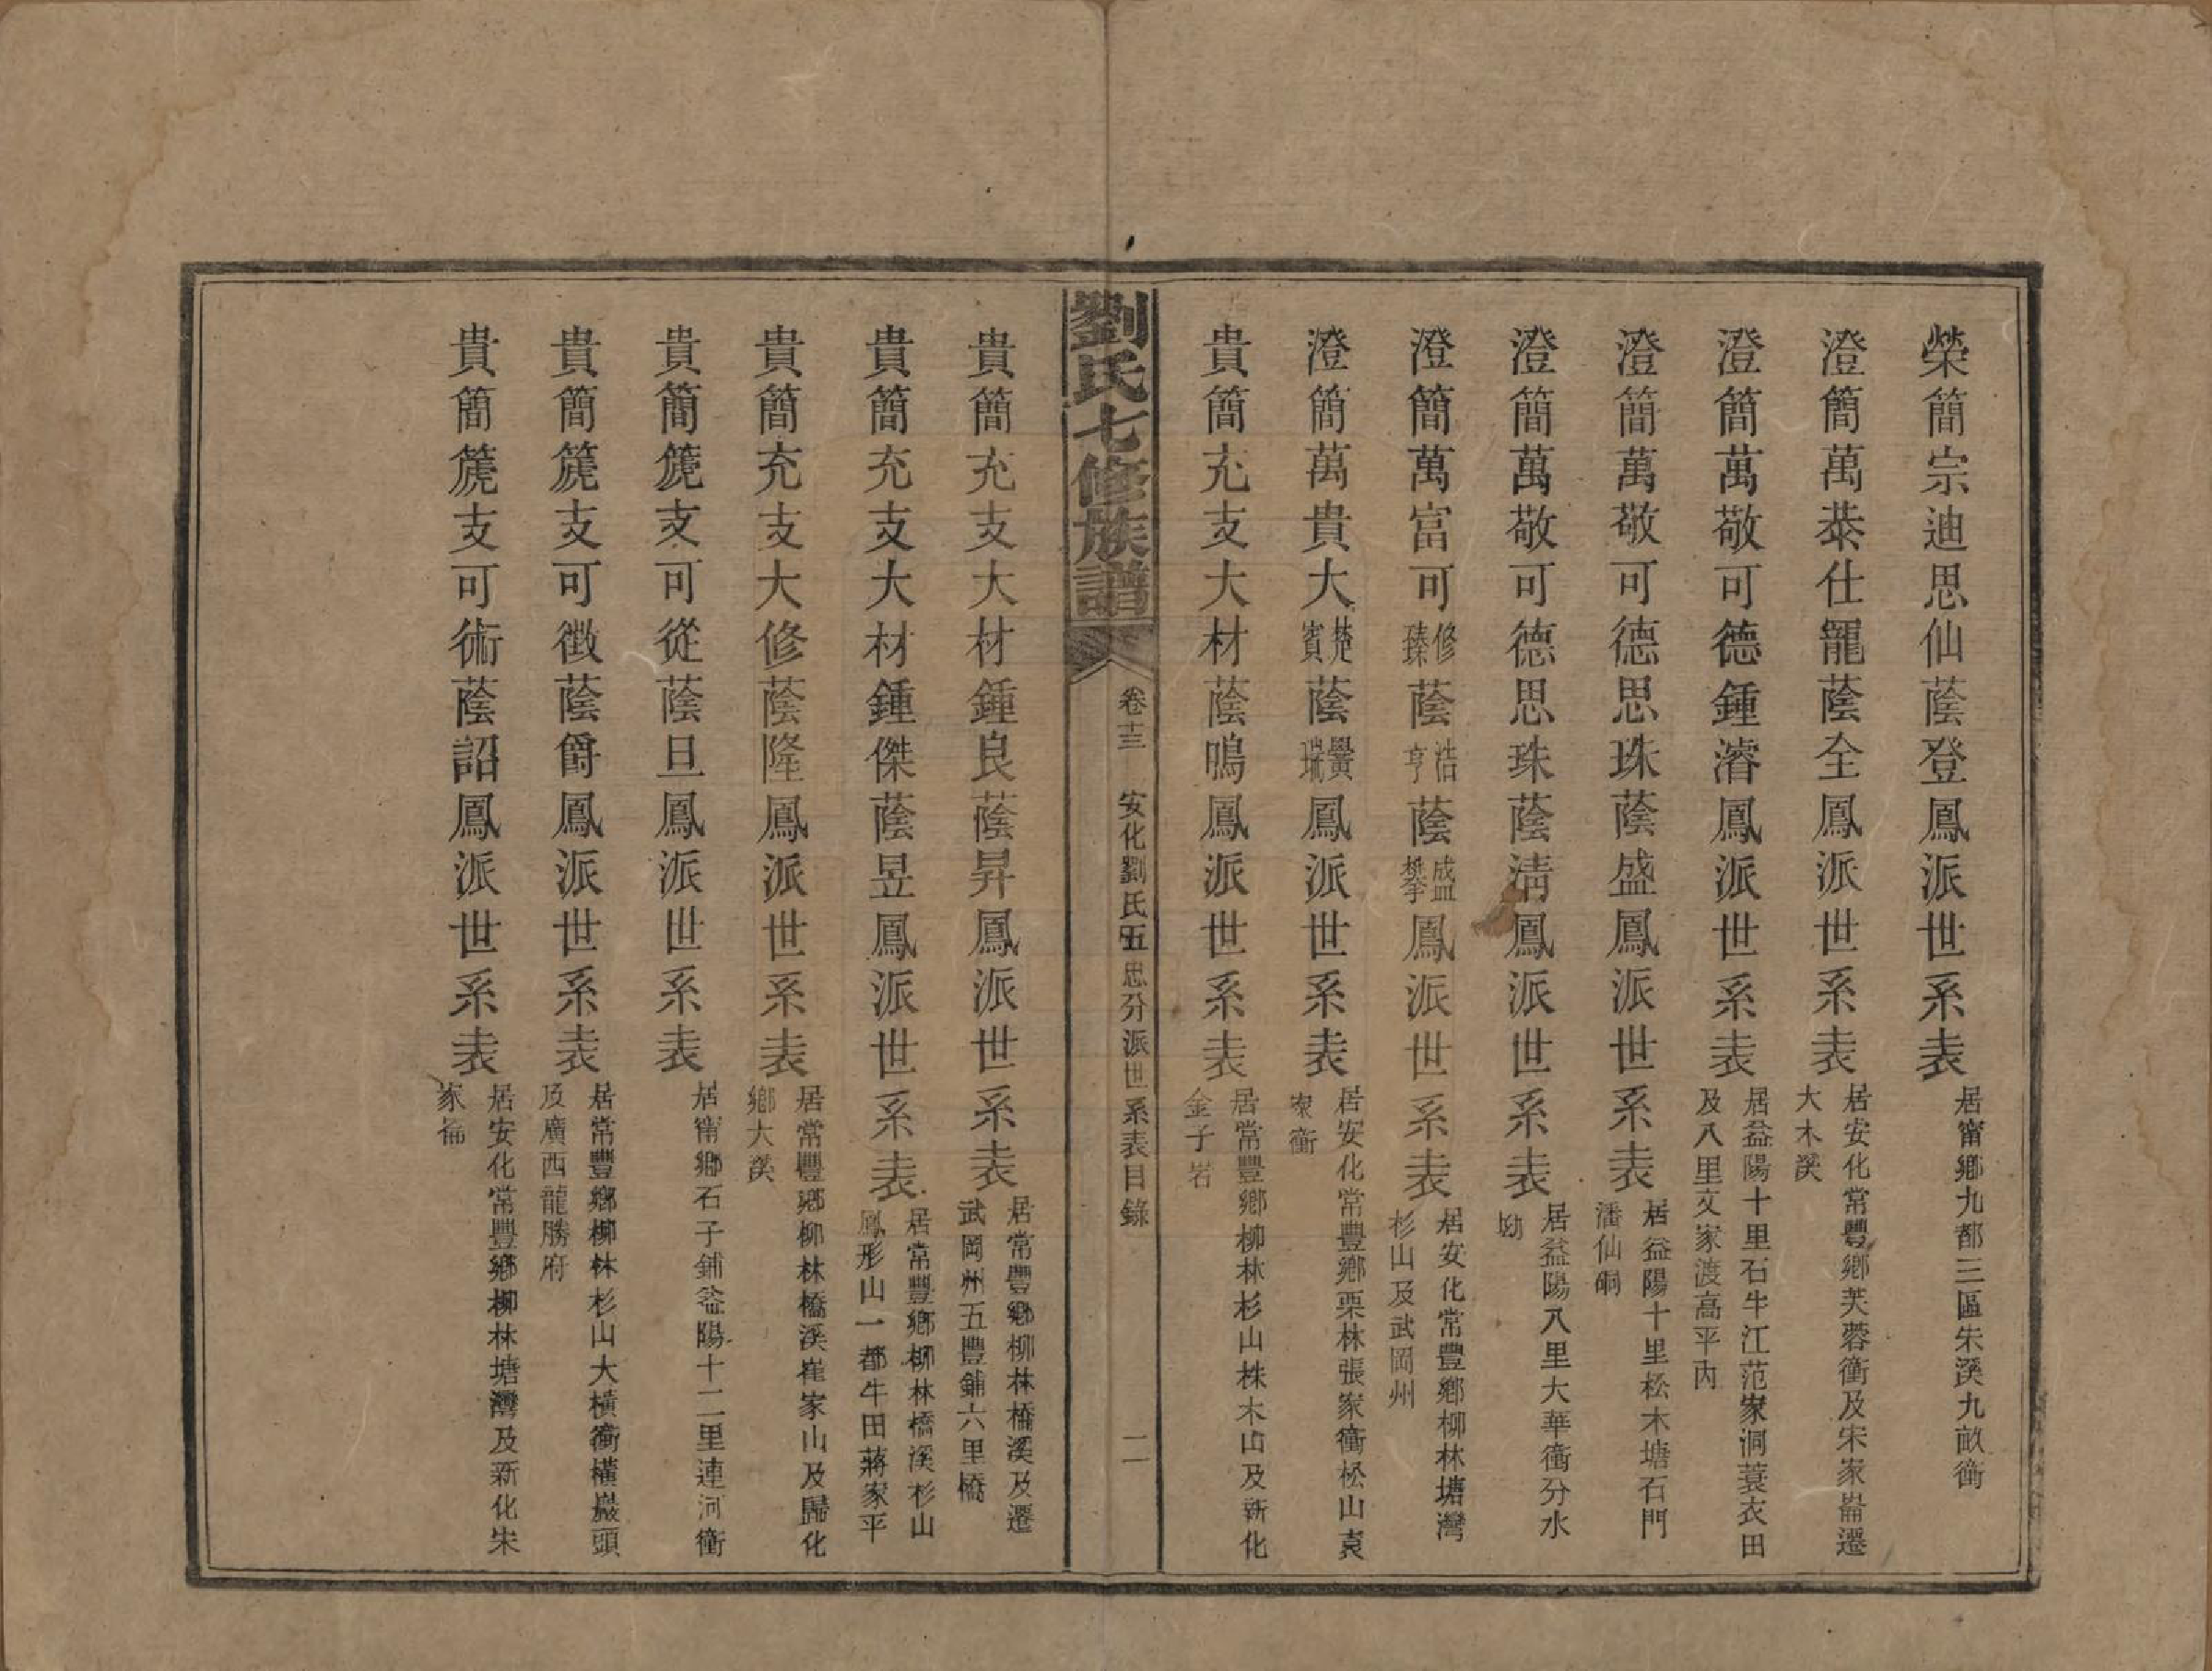 榮簡宗迪思仙蔭登鳳派世系表 居甯鄉九都三區朱溪九畝衝
澄簡萬泰仕寵蔭全鳳派世系表 居安化常豐鄉芙蓉衝及宋家崙遷
大木溪
澄簡萬敬可德鍾濬鳳派世系表 居益陽十里石牛江范家洞蓑衣田
及八里文家渡高平內
澄簡萬敬可德思珠蔭盛鳳派世系表 居益陽十里松木塘石門
潘仙硐
澄簡萬敬可德思珠蔭清鳳派世系表 居益陽八里大華衝分水
坳
澄簡萬富可修臻蔭浩亨蔭盛攀鳳派世系表 居安化常豐鄉柳林塘灣
杉山及武岡州
澄簡萬貴大楚賓蔭黌瑞鳳派世系表 居安化常豐鄉栗林張家衝松山袁
家衝
貴簡充支大材蔭鳴鳳派世系表 居常豐鄉柳林杉山株木山及新化
金子岩
劉氏七修族譜 卷十三 安化劉氏五忠分派世系表目錄 二
貴簡充支大材鍾良蔭昇鳳派世系表 居常豐鄉柳林橋溪及遷
武岡州五豐鋪六里橋
貴簡充支大材鍾傑蔭昱鳳派世系表 居常豐鄉柳林橋溪杉山
鳳形山一都牛田蔣家平
貴簡充支大修蔭隆鳳派世系表 居常豐鄉柳林橋溪崔家山及歸化
鄉大溪
貴簡篪支可從蔭旦鳳派世系表 居甯鄉石子鋪益陽十二里連河衝
貴簡篪支可徵蔭爵鳳派世系表 居常豐鄉柳林杉山大橫衝橫巖頭
及廣西龍勝府
貴簡篪支可術蔭詔鳳派世系表 居安化常豐鄉柳林塘灣及新化朱
家崙